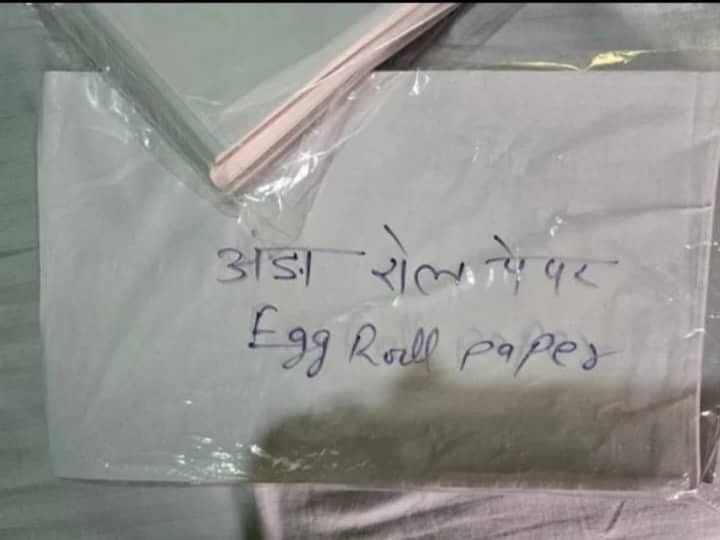 अंडा रोल पेपर
Egg Roll paper